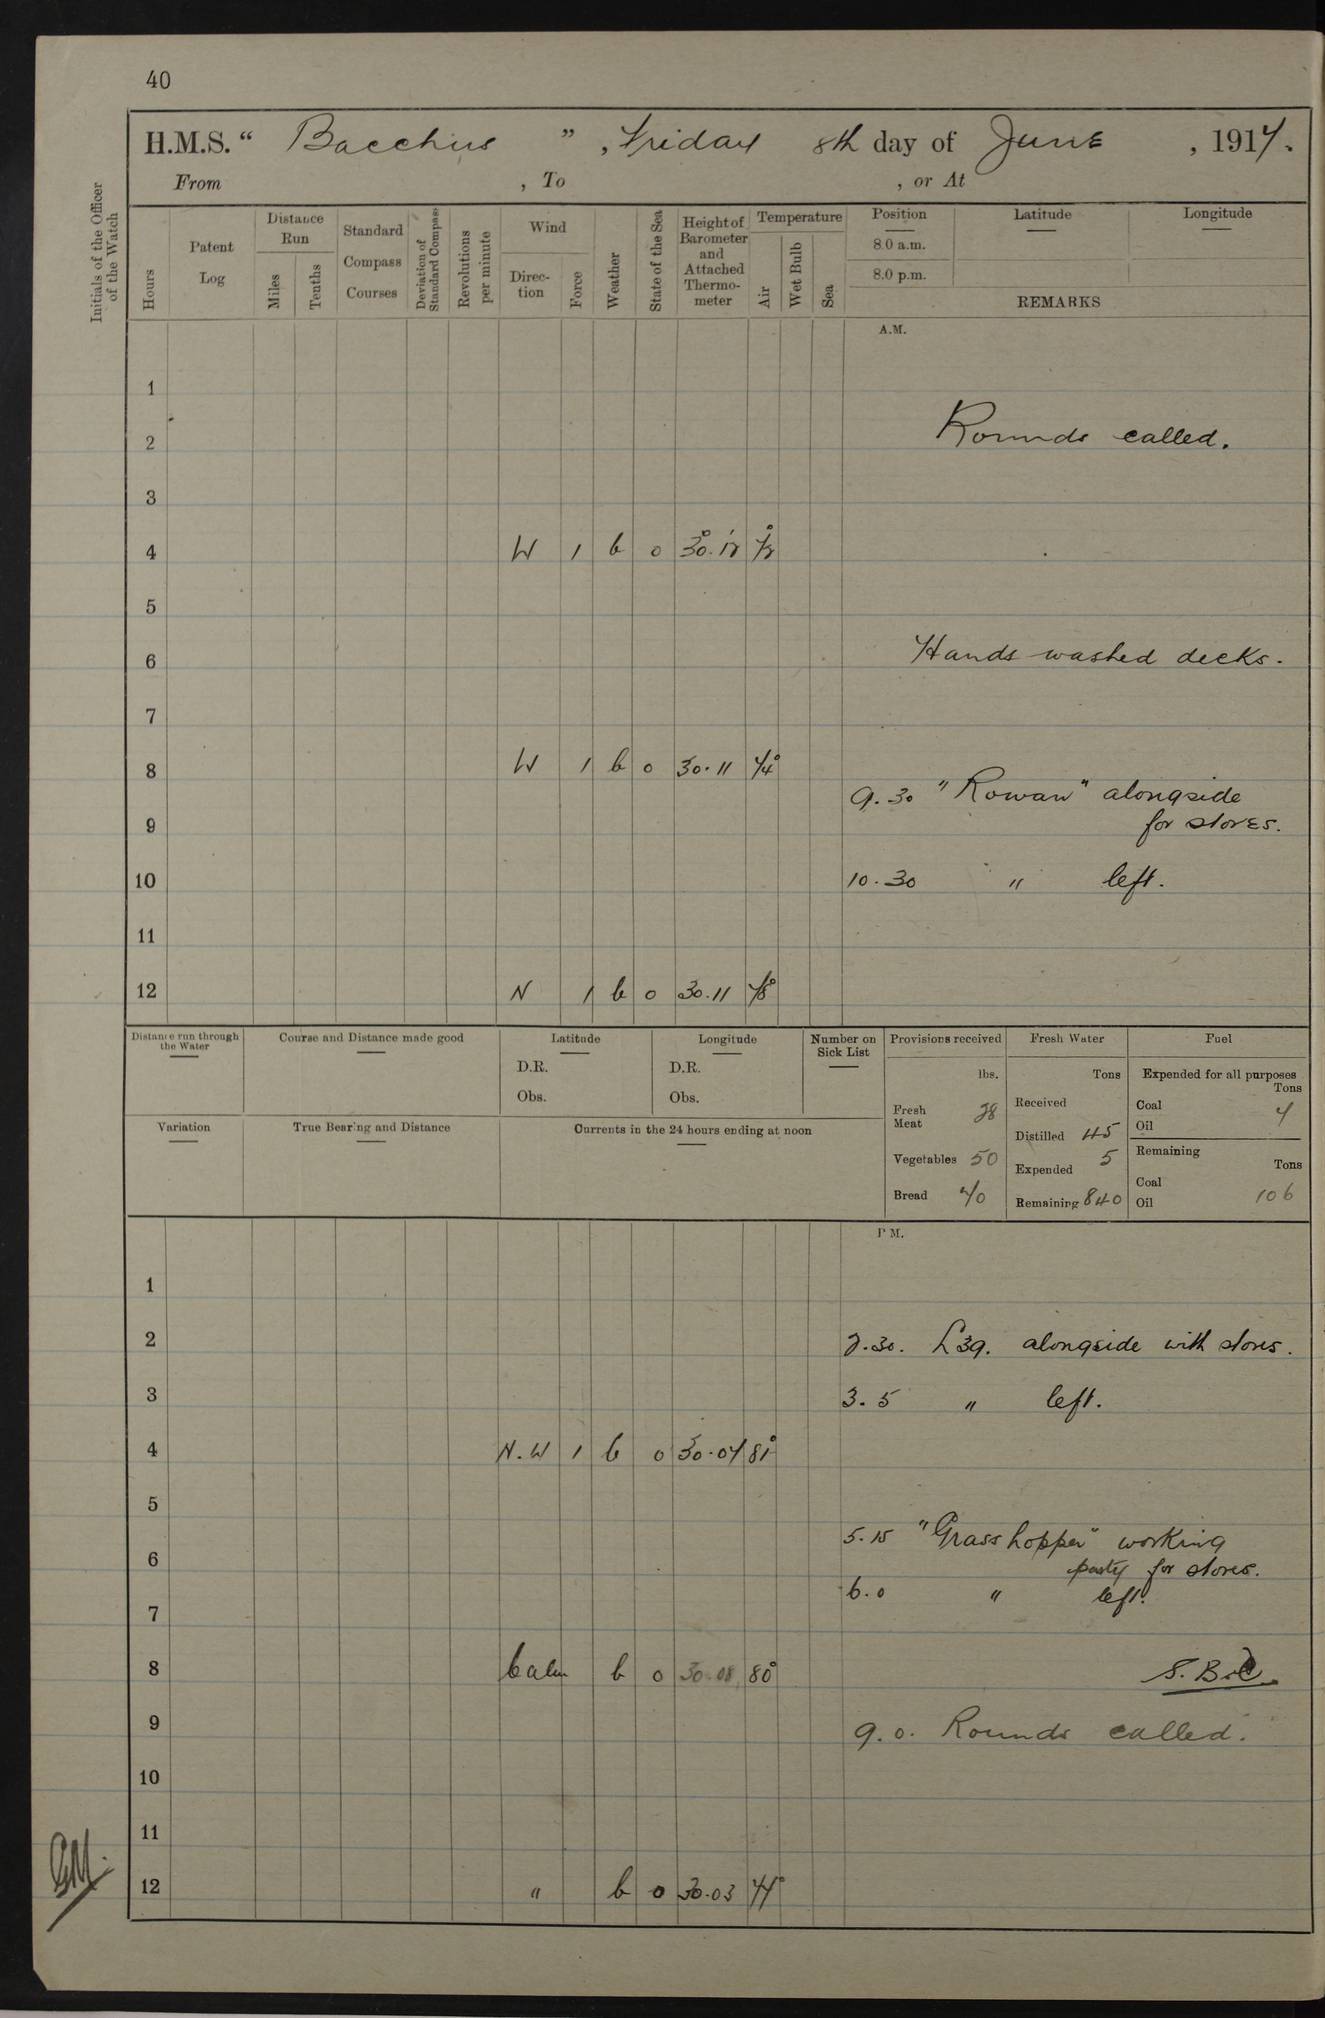 40
H.M.S. “ Bacchus ” , Friday 8th day of June , 1917.
From , To , or At
Initials of the Officer of the Watch
Hours
Patent Log
Distance Run
Miles
Tenths
Standard Compass Courses
Deviation of Standard Compass
Revolutions per minute
Wind
Direc-tion
Force
Weather
State of the Sea
Height of Barometer and Attached Thermo-meter
Temperature
Air
Wet Bulb
Sea
Position Latitude Longitude
8.0 a.m.
8.0 p.m.
REMARKS
A.M.
1
2 Rounds called.
3
4 W 1 b 0 30.12 72°
5
6 Hands washed decks.
7
8 W 1 b 0 30.11 74°
9.30 "Rowan" alongside
9 for stores.
10 10.30 " left.
11
12 N 1 b 0 30.11 78°
Distance run through the Water
Course and Distance made good
Latitude
D.R.
Obs.
Longitude
D.R.
Obs.
Number on Sick List
Provisions received
lbs.
Fresh Meat 28
Vegetables 50
Bread 70
Fresh Water
Tons
Received
Distilled 45
Expended 5
Remaining 840
Fuel
Expended for all purposes
Tons
Coal 7
Oil
Remaining
Tons
Coal
Oil 106
Variation
True Bearing and Distance
Currents in the 24 hours ending at noon
P M.
1
2 2.30. L39. alongside with stores.
3 3.5 " left.
4 N.W 1 b 0 30.07 81°
5
5.15 "Grasshopper" working
6 party for stores.
6.0 " left.
7
8 Calm b 0 30.08 80°
9 9.0. Rounds called.
10
11
12 " b 0 30.03 77°